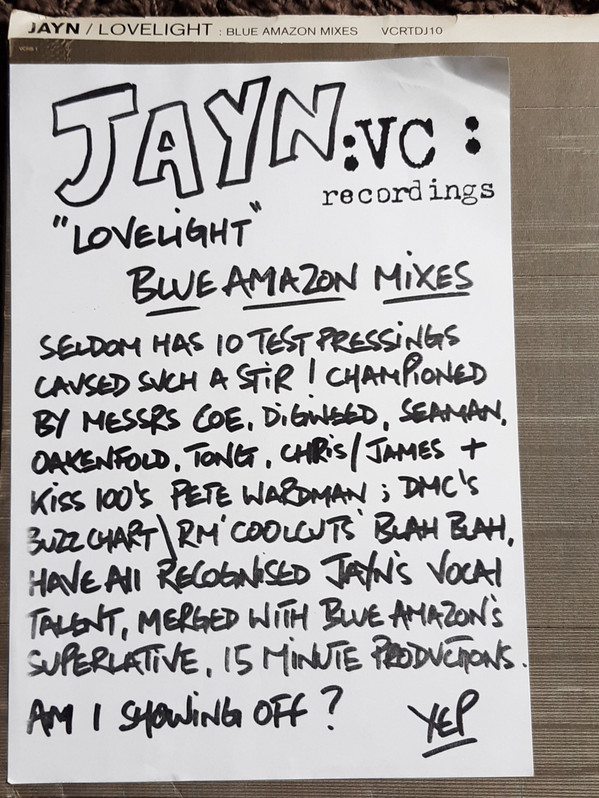 JAYN / LOVELIGHT : BLUE AMAZON MIXES VCRTDJ10
JAYN :VC :
recordings
"LOVELIGHT"
BLUE AMAZON MIXES
SELDOM HAS 10 TEST PRESSINGS
CAUSED SUCH A STIR! CHAMPIONED
BY MESSRS COE, DIGWEED, SEAMAN,
OAKENFOLD, TONG, CHRIS/JAMES +
KISS 100'S PETE WARDMAN ; DMC'S
BUZZ CHART\RM 'COOLCUTS' BLAH BLAH,
HAVE All RECOGNISED JAYN'S VOCAl
TALENT, MERGED WITH BLUE AMAZON'S
SUPERLATIVE, 15 MINUTE PRODUCTIONS.
AM I SHOWING OFF? YEP